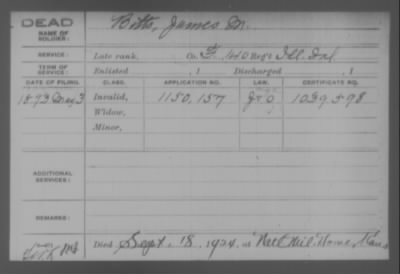 DEAD
NAME OF SOLDIER: Bitts, James M.
SERVICE: Late rank, Co. F, 140 Reg't Ill. Inf
TERM OF SERVICE: Enlisted , 1 Discharged , 1
DATE OF FILING. CLASS. APPLICATION NO. LAW. CERTIFICATE NO.
1893 May 3 Invalid, 1150,157 G&O 1039598
Widow,
Minor,
ADDITIONAL SERVICES:
REMARKS:
Died Sept. 18, 1924, at Nat Mil Home, Kans